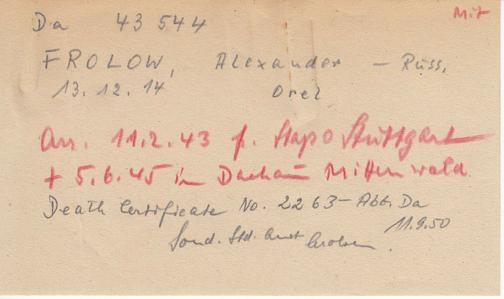 Da 43 544 Mit
FROLOW, Alexander — Russ,
13.12.14 Orel
Arr. 11.2.43 f. Stapo Stuttgart
+ 5.6.45 in Dachau Mittenwald
Death Certificate No. 2263 - Abt. Da
11.9.50
Sond. Std. Amt Arolsen.